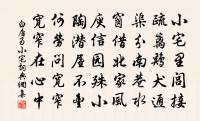 小宅里閭接
疏籬鷄犬通
渠分南巷水
窗借北家風
庾信園殊小
陶潛屋不豐
何勞問寬窄
寬窄在心中
白居易小宅詞典網集